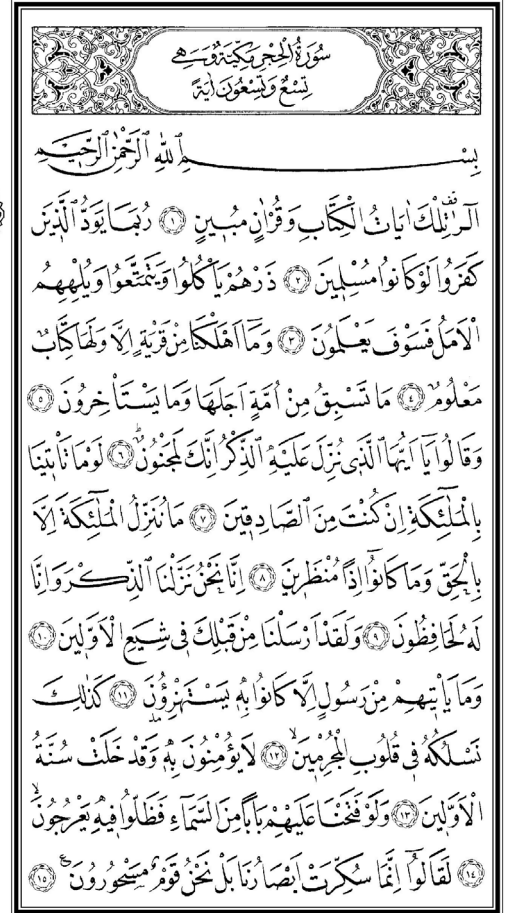 سُورَةُ الْحِجْرِ مَكِّيَّةٌ وَهِيَ
تِسْعٌ وَتِسْعُونَ اٰيَةً
بِسْمِ اللّٰهِ الرَّحْمٰنِ الرَّحٖيمِ
الٓرٰ تِلْكَ اٰيَاتُ الْكِتَابِ وَقُرْاٰنٍ مُبٖينٍ ﴿١﴾ رُبَمَا يَوَدُّ الَّذٖينَ
كَفَرُوا لَوْ كَانُوا مُسْلِمٖينَ ﴿٢﴾ ذَرْهُمْ يَأْكُلُوا وَيَتَمَتَّعُوا وَيُلْهِهِمُ
الْاَمَلُ فَسَوْفَ يَعْلَمُونَ ﴿٣﴾ وَمَٓا اَهْلَكْنَا مِنْ قَرْيَةٍ اِلَّا وَلَهَا كِتَابٌ
مَعْلُومٌ ﴿٤﴾ مَا تَسْبِقُ مِنْ اُمَّةٍ اَجَلَهَا وَمَا يَسْتَأْخِرُونَ ﴿٥﴾
وَقَالُوا يَٓا اَيُّهَا الَّذٖى نُزِّلَ عَلَيْهِ الذِّكْرُ اِنَّكَ لَمَجْنُونٌ ﴿٦﴾ لَوْمَا تَأْتٖينَا
بِالْمَلٰٓئِكَةِ اِنْ كُنْتَ مِنَ الصَّادِقٖينَ ﴿٧﴾ مَا نُنَزِّلُ الْمَلٰٓئِكَةَ اِلَّا
بِالْحَقِّ وَمَا كَانُٓوا اِذًا مُنْظَرٖينَ ﴿٨﴾ اِنَّا نَحْنُ نَزَّلْنَا الذِّكْرَ وَاِنَّا
لَهُ لَحَافِظُونَ ﴿٩﴾ وَلَقَدْ اَرْسَلْنَا مِنْ قَبْلِكَ فٖى شِيَعِ الْاَوَّلٖينَ ﴿١٠﴾
وَمَا يَأْتٖيهِمْ مِنْ رَسُولٍ اِلَّا كَانُوا بِهٖ يَسْتَهْزِؤُنَ ﴿١١﴾ كَذٰلِكَ
نَسْلُكُهُ فٖى قُلُوبِ الْمُجْرِمٖينَ ﴿١٢﴾ لَا يُؤْمِنُونَ بِهٖ وَقَدْ خَلَتْ سُنَّةُ
الْاَوَّلٖينَ ﴿١٣﴾ وَلَوْ فَتَحْنَا عَلَيْهِمْ بَابًا مِنَ السَّمَٓاءِ فَظَلُّوا فٖيهِ يَعْرُجُونَ
﴿١٤﴾ لَقَالُٓوا اِنَّمَا سُكِّرَتْ اَبْصَارُنَا بَلْ نَحْنُ قَوْمٌ مَسْحُورُونَ ﴿١٥﴾